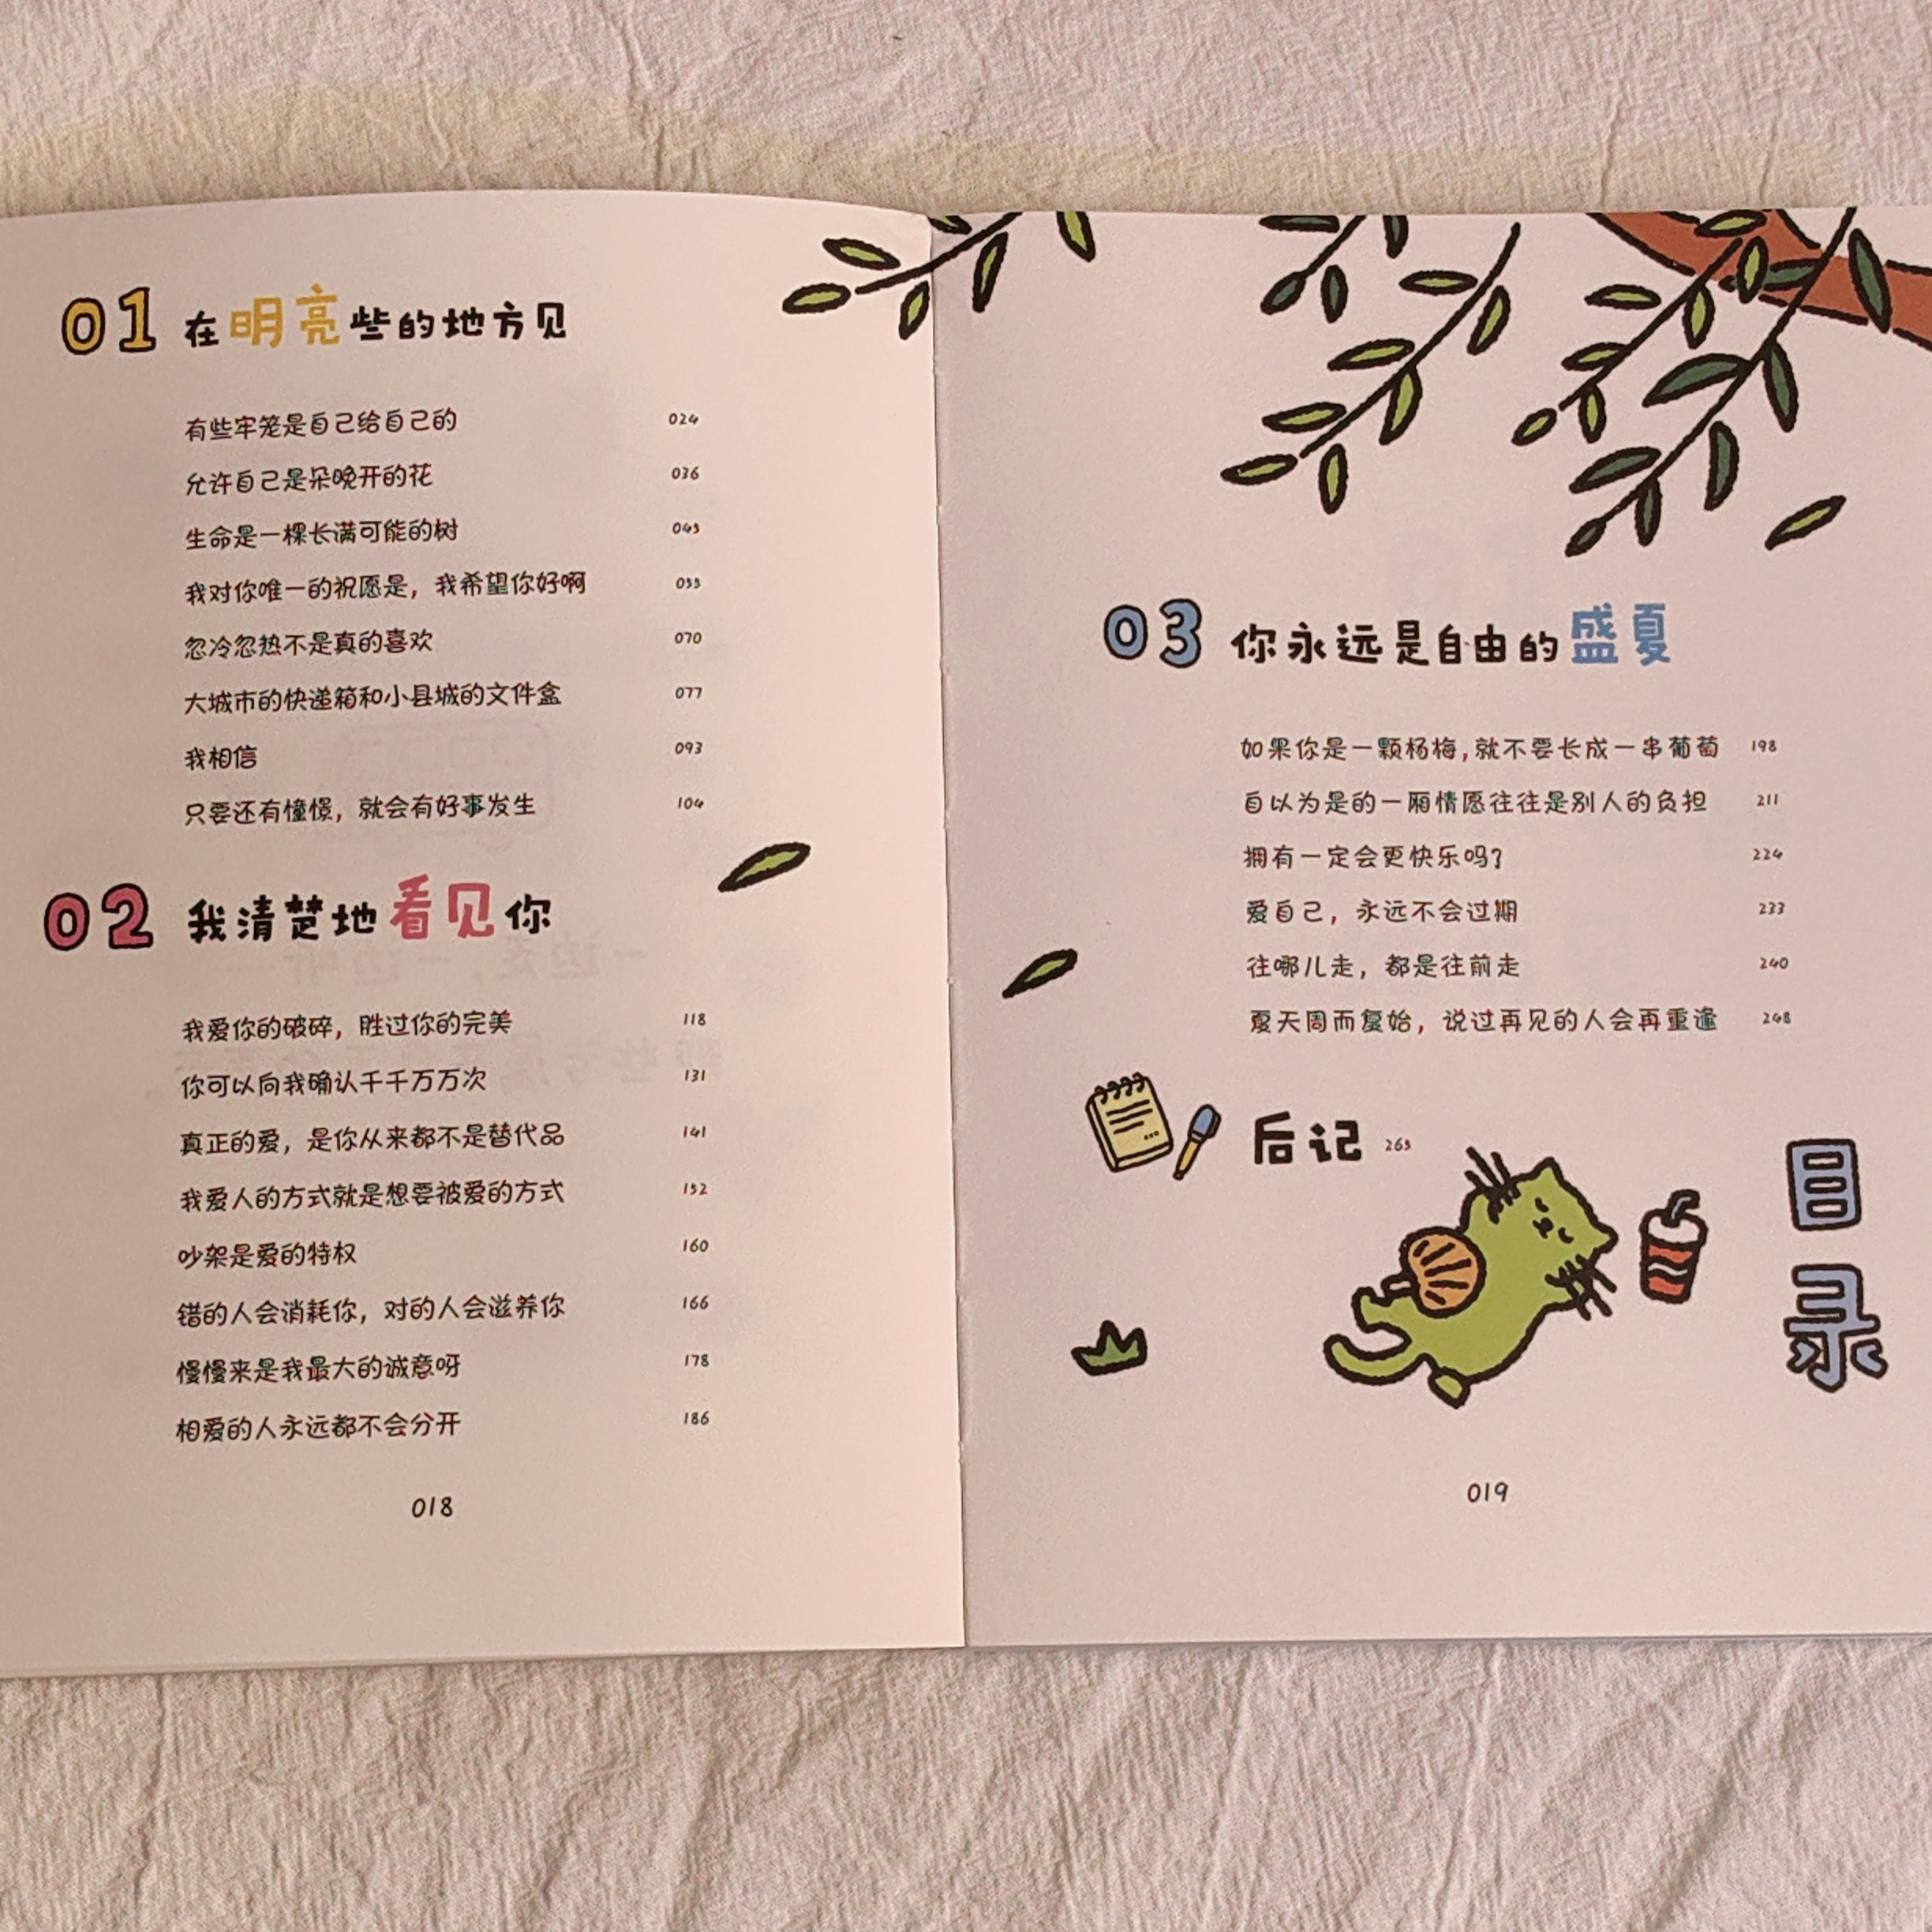 01 在明亮些的地方见
有些牢笼是自己给自己的 024
允许自己是朵晚开的花 036
生命是一棵长满可能的树 045
我对你唯一的祝愿是，我希望你好啊 055
忽冷忽热不是真的喜欢 070
大城市的快递箱和小县城的文件盒 077
我相信 093
只要还有憧憬，就会有好事发生 104
02 我清楚地看见你
我爱你的破碎，胜过你的完美 118
你可以向我确认千千万万次 131
真正的爱，是你从来都不是替代品 141
我爱人的方式就是想要被爱的方式 152
吵架是爱的特权 160
错的人会消耗你，对的人会滋养你 166
慢慢来是我最大的诚意呀 178
相爱的人永远都不会分开 186
018
03 你永远是自由的盛夏
如果你是一颗杨梅，就不要长成一串葡萄 198
自以为是的一厢情愿往往是别人的负担 211
拥有一定会更快乐吗？ 224
爱自己，永远不会过期 233
往哪儿走，都是往前走 240
夏天周而复始，说过再见的人会再重逢 248
后记 265
目录
019